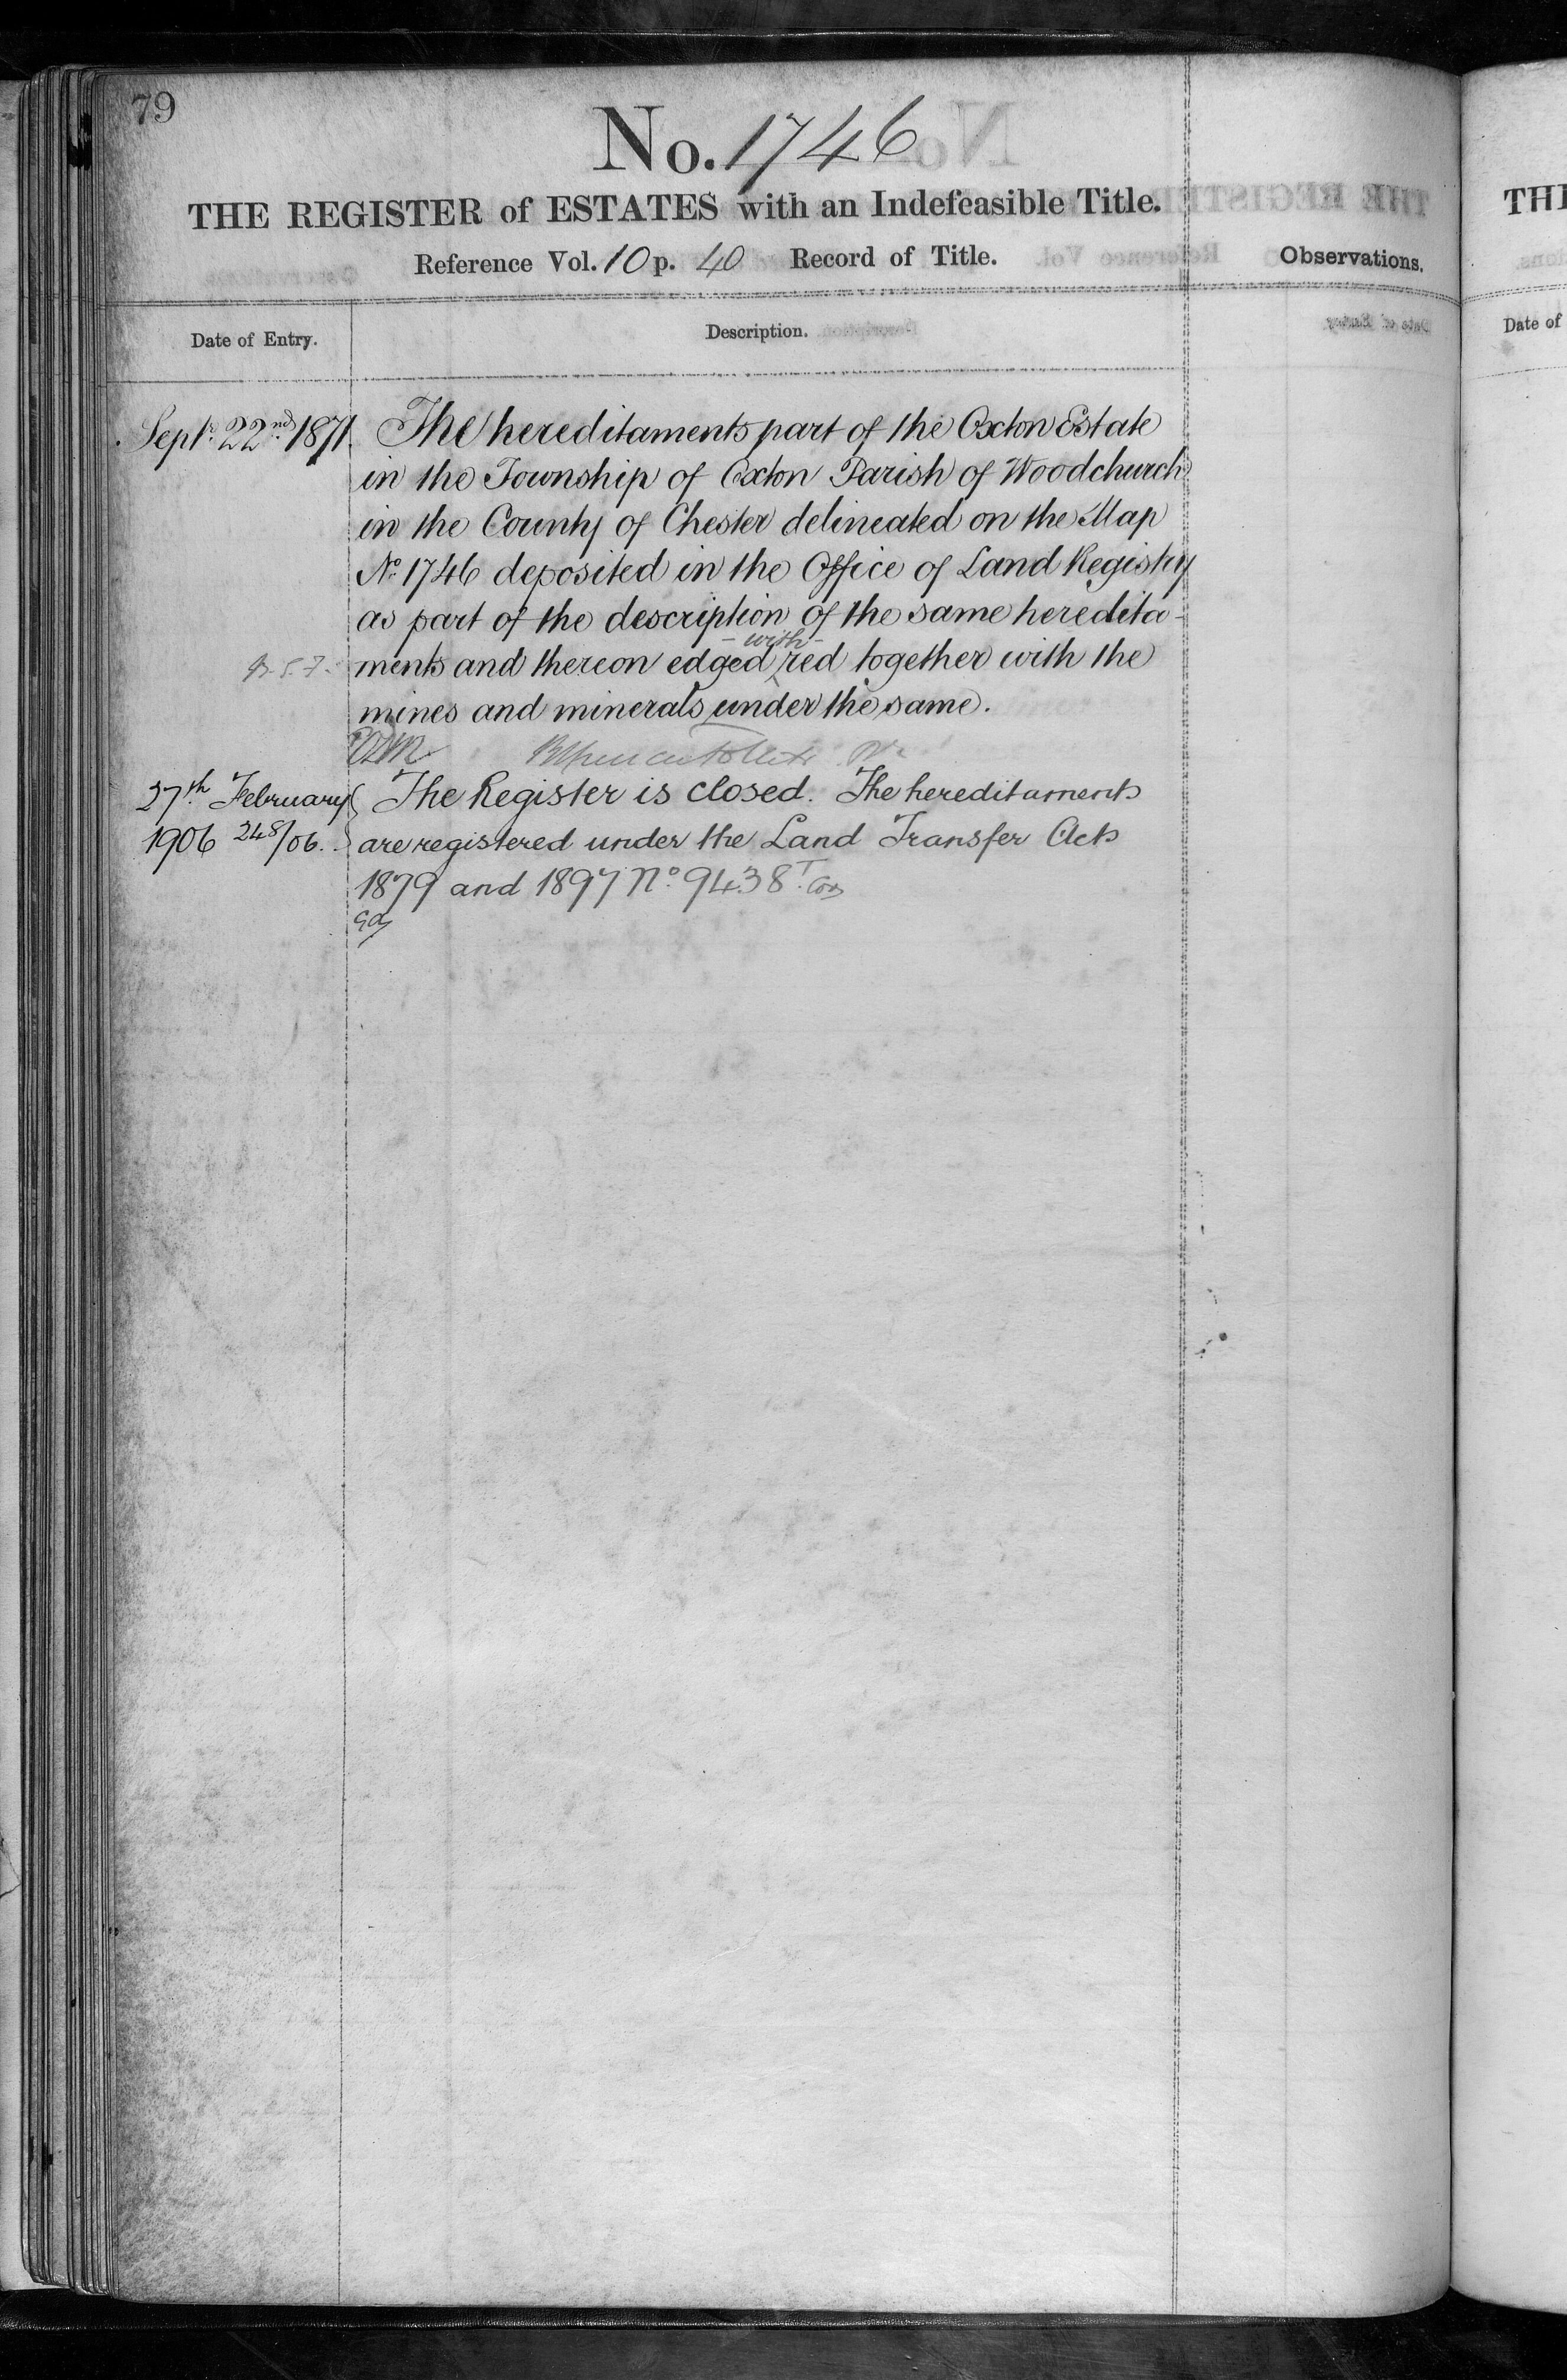 79
No. 1746
THE REGISTER of ESTATES with an Indefeasible Title.
Reference Vol. 10 p. 40 Record of Title.
Observations.
Date of Entry.
Description.
Sept. 22nd 1871. The hereditaments part of the Oxton Estate
in the Township of Oxton Parish of Woodchurch
in the County of Chester delineated on the Map
No. 1746 deposited in the Office of Land Registry
as part of the description of the same heredita-
ments and thereon edged with red together with the
mines and minerals under the same.
27th February The Register is closed. The hereditaments
1906 248/06. are registered under the Land Transfer Acts
1879 and 1897 No. 9438
THE
Date of